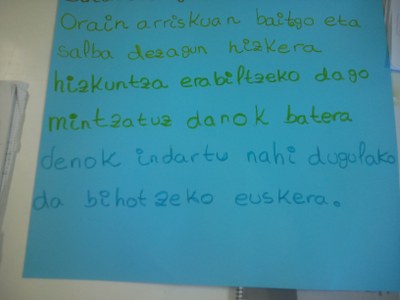 Orain arriskuan baitgo eta
salba dezagun hizkera
hizkuntza erabiltzeko dago
mintzatuz danok batera
denok indartu nahi dugulako
da bihotzeko euskera.